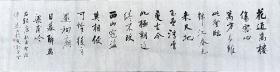 花近高樓
傷客心
萬方多難
此登臨
錦江春色
來天地
玉壘浮雲
變古今
北極朝廷
終不改
西山寇盜
莫相侵
可憐後主
還祠廟
日暮聊為
梁甫吟